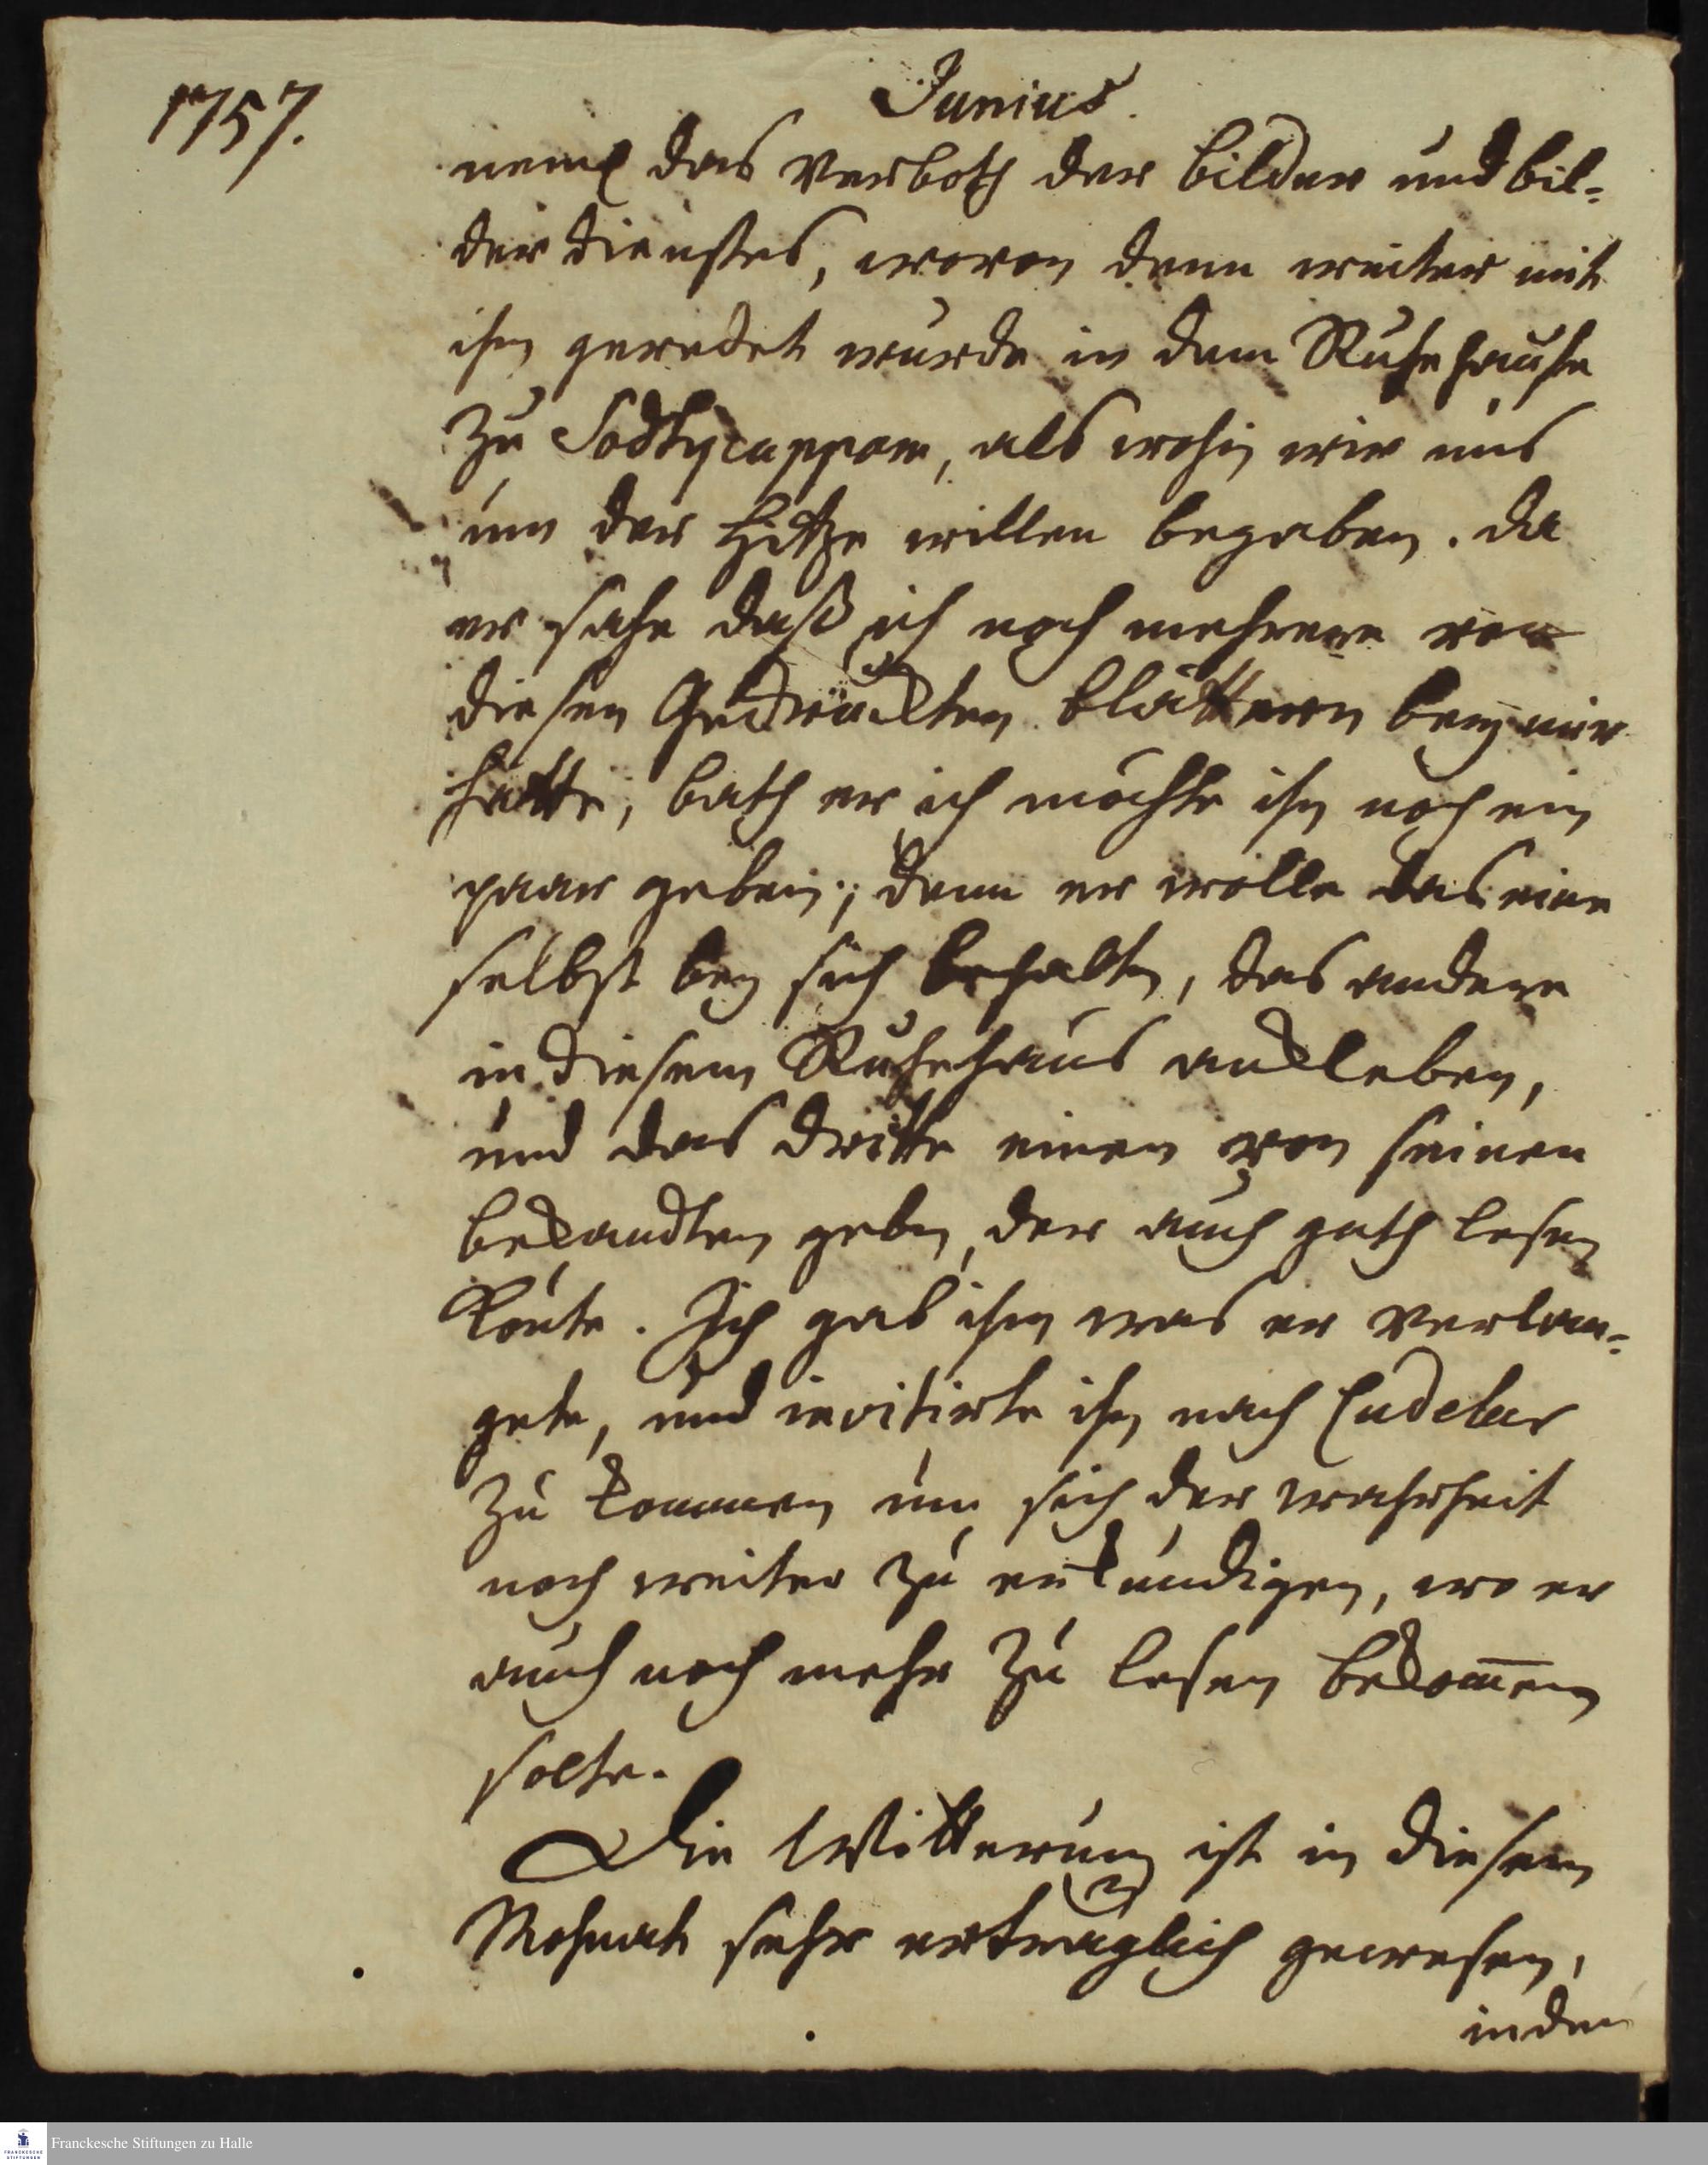 1757.
Junius.
neml das Verboth der bilder und bil-
der dienstes, wovon denn weiter mit
ihm geredet wurde in dem Ruhehause
zu Sodhycuppam, als wohin wir uns
um der Hitze willen begaben. da
er sahe daß ich noch mehrere von
diesen Gedruckten blättern bey mir
hatte, bath er ich möchte ihm noch ein
paar geben; denn er wolle das eine
selbst bey sich behalten, das andere
in diesem Ruhehaus ankleben,
und das dritte einem von seinen
bekandten geben, der auch guth lesen
könte. Ich gab ihm was er verlan-
gete, und invitirte ihn nach Cudelur
zu kommen um sich der wahrheit
noch weiter zu erkundigen, wo er
auch noch mehr zu lesen bekom̅en
solte.
Die Witterung ist in diesem
Mohnath sehr erträglich gewesen,
indem
Franckesche Stiftungen zu Halle
FRANCKESCHE
STIFTUNGEN